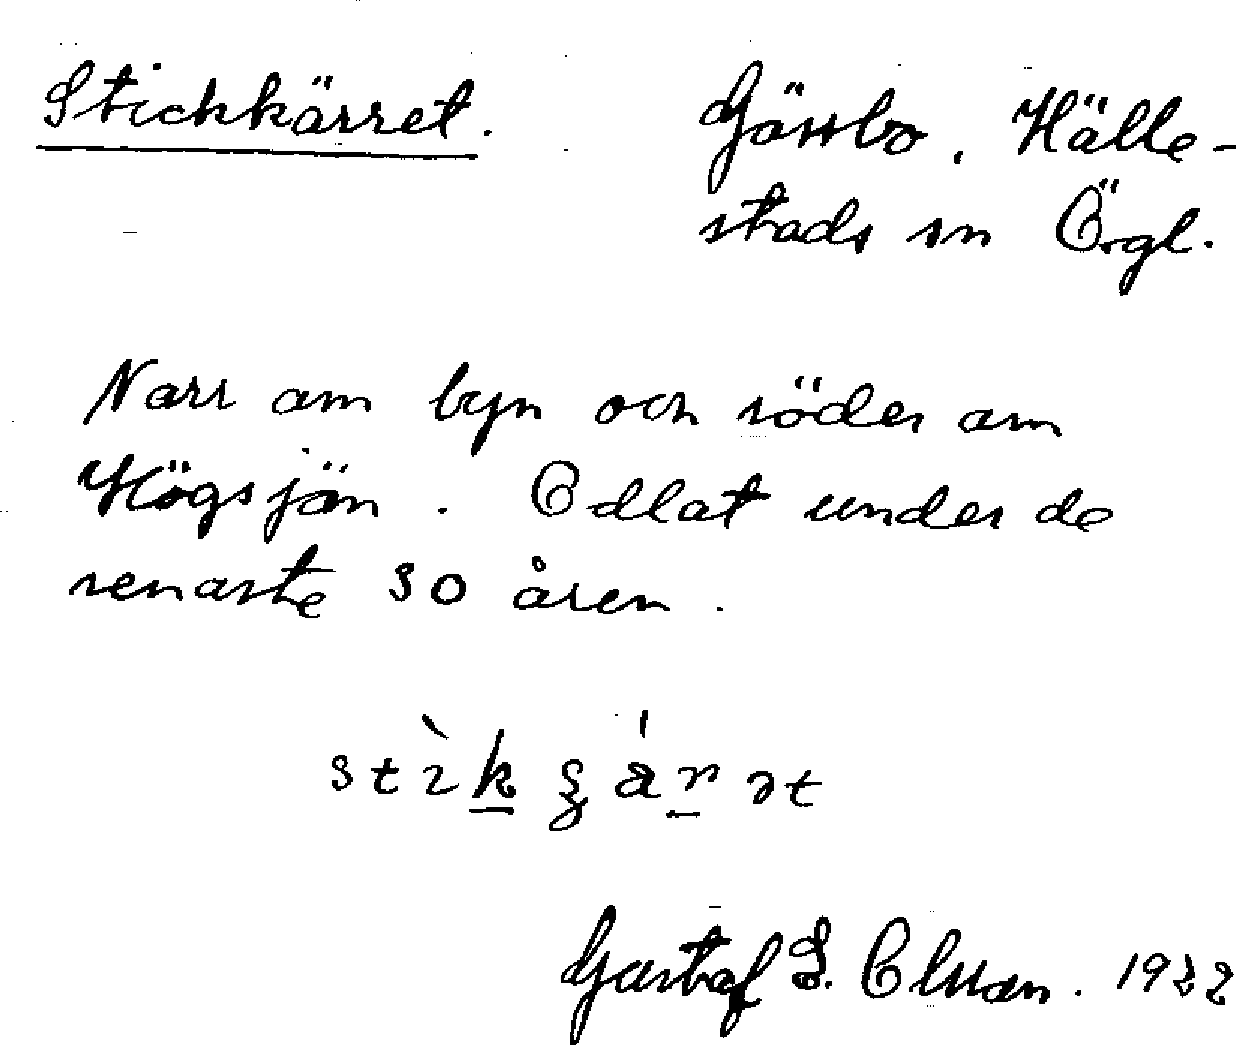 Stickkärret.
Hälle-
stads sn Ögl.
Norr om byn och söder om
Högsjön. Odlat under de
senaste 30 åren.
Gustaf S. Olsson.